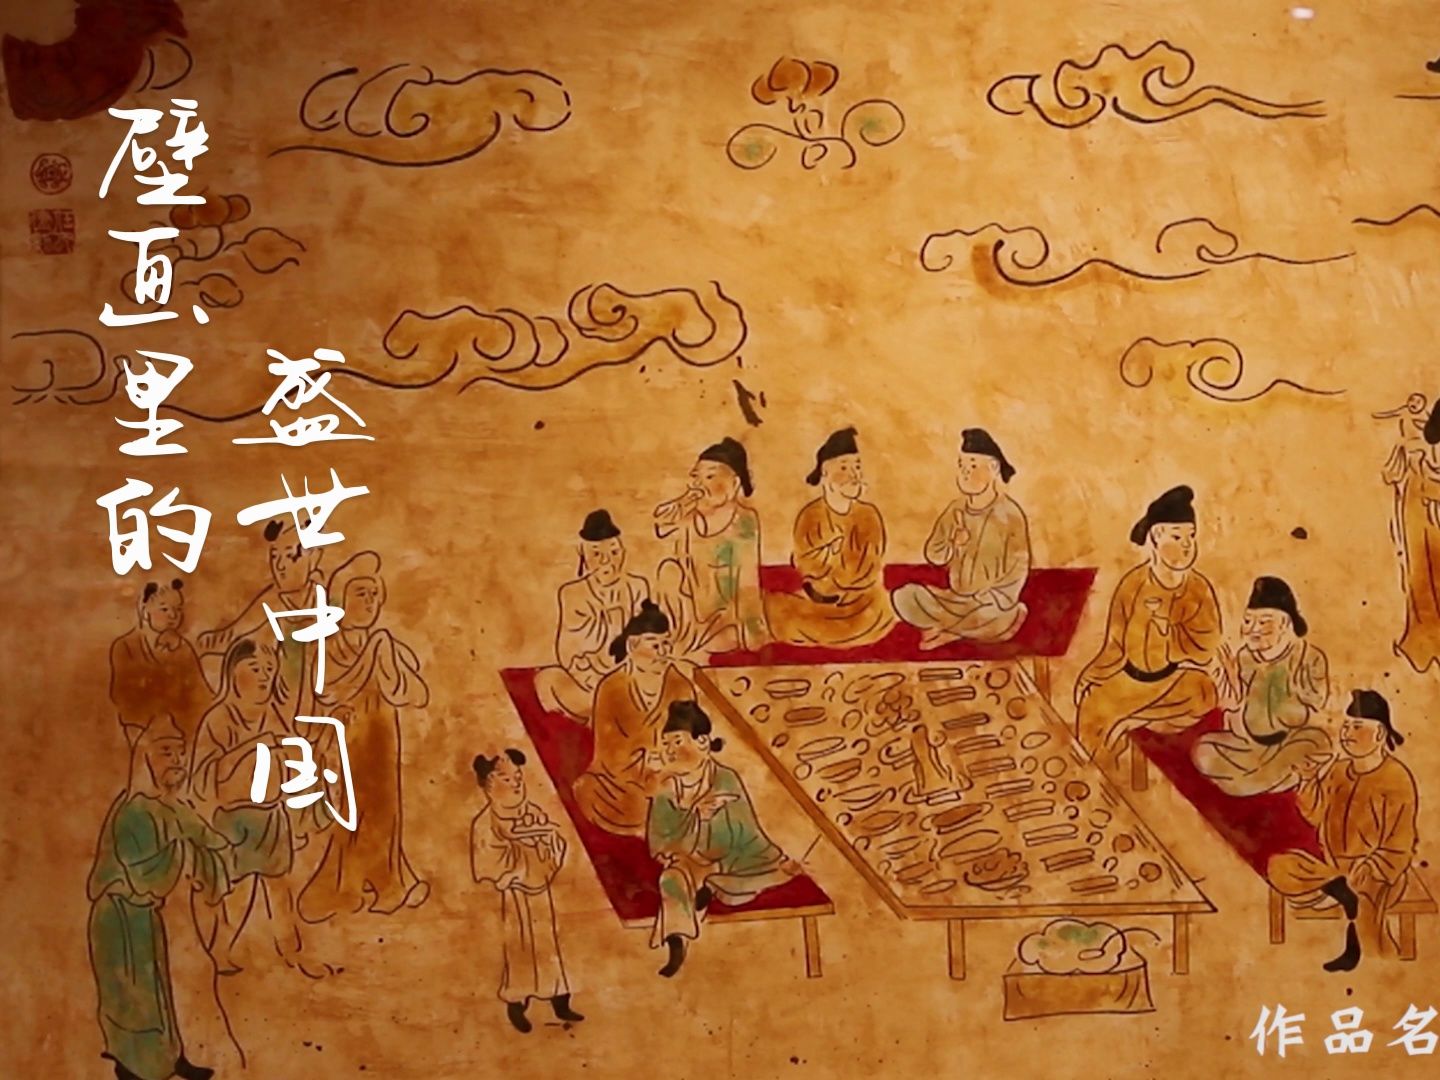 壁画里的
盛世中国
作品名